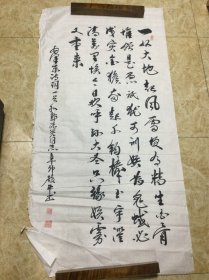 一从大地起风雷便有精生白骨
堆僧是愚氓犹可训妖为鬼蜮必
成灾金猴奋起千钧棒玉宇澄
清万里埃今日欢呼孙大圣只缘妖雾
又重来
毛泽东诗词一首和郭沫若同志